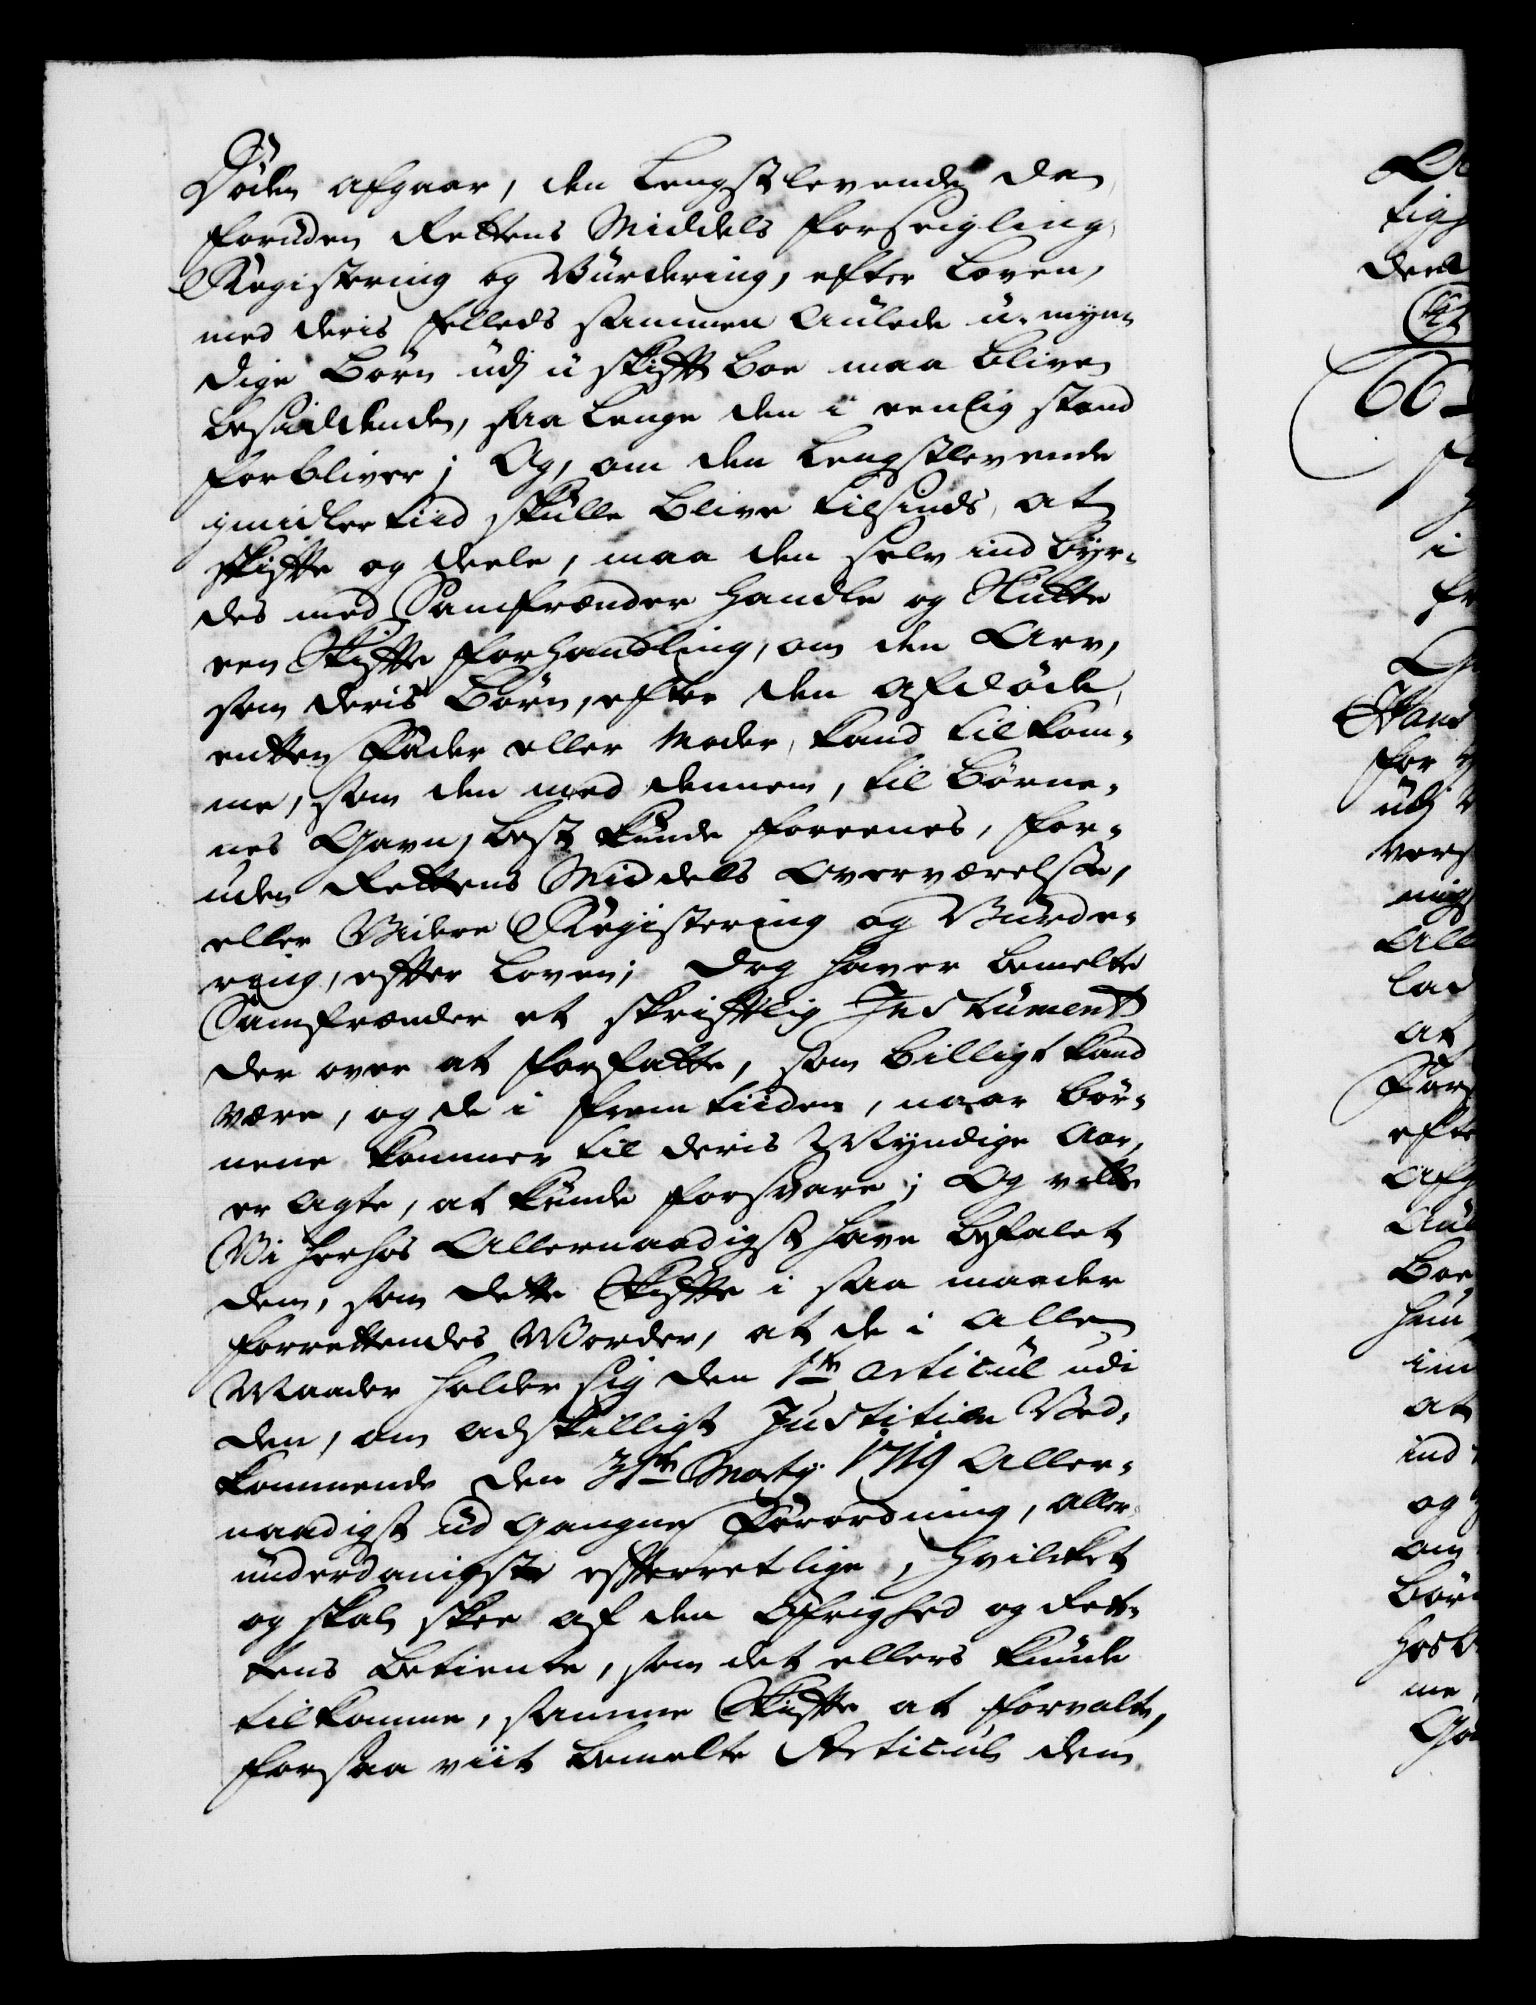 Døden afgaar, den Lengstlevende da
foruden Rettens Middels forseigling,
Registering og Vurdering, efter Loven,
med deris felleds sammen Aulede u-myn-
dige Børn udj u-skifft Boe maa blive
besiddende, saa lenge den i eenlig stand
forbliver; Og, om den Lengstlevende
jmidlertiid skulle blive tilsinds at
skiffte og deele, maa den selv ind byr-
des med Samfrænder handle og slutte
een Skiffte forhandling, om den Arv,
som deris Børn, efter den afdøde,
entten Fader eller Moder, kand tilkom-
me, som den med dennem, til Børne-
nes Gavn, best kunde foreenes, for-
uden Rettens Middels Overværelsse,
eller Videre Registering og Vurde-
ring, effter Loven; dog haver bemelte
Samfrænder et skrifftlig Instrument
der over at forfatte, som billigt kand
være, og de i fremtiiden, naar Bør-
nene kommer til deris Myndige Aar,
er agte, at kunde forsvare; Og ville
Vi herhos Allernaadigst have befalet
dem, som dette Skiffte i saa maader
forrettendes Worder, at de i alle
Maader holder sig den 1te Articul udi
den, om adskilligt Justitien Ved-
kommende den 31te Marty 1719 Aller-
naadigst ud gangne Forordning, aller-
underdanigste effterretlige, hvilcket
og skal skee af den Øfrighed og Ret-
tens betiente, som det ellers kunde
tilkomme, samme Skiffte at forvalte,
forsaa viit bemelte Articul dem